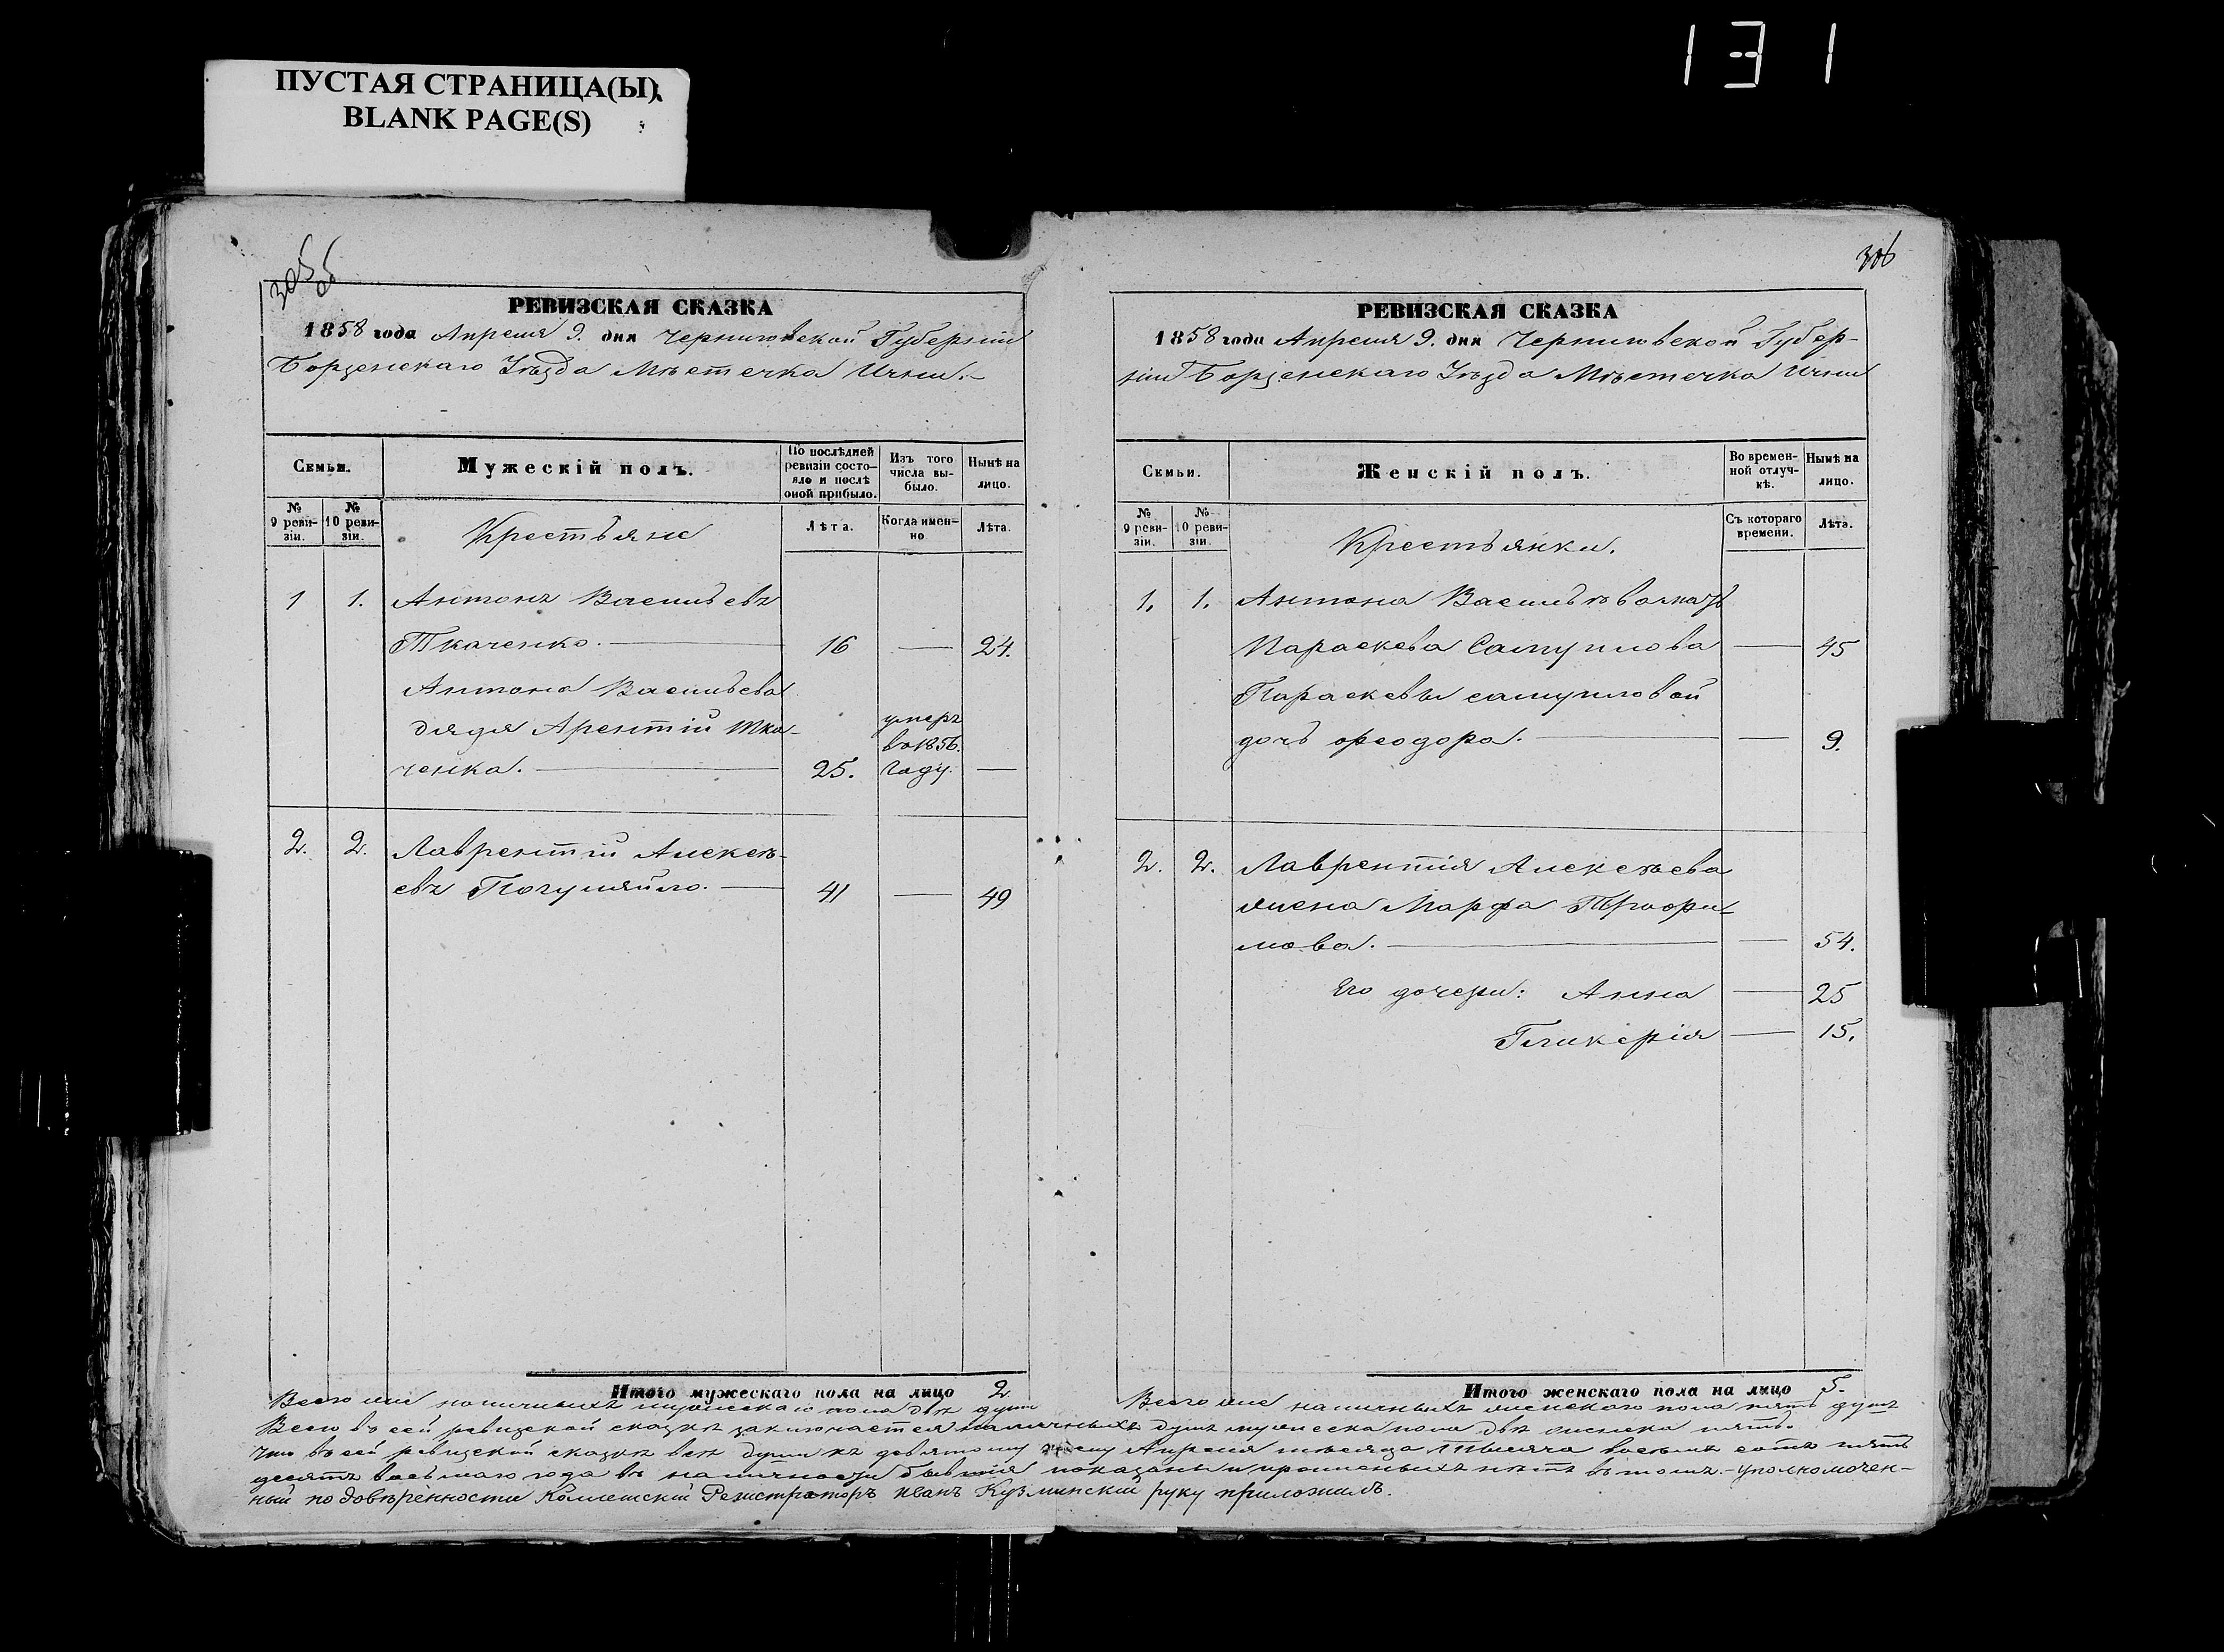 131
ПУСТАЯ СТРАНИЦА(Ы)
BLANK PAGE(S)
305 об
РЕВИЗСКАЯ СКАЗКА
1858 года Апреля 9. дня Черниговской Губерніи
Борзенскаго Уѣзда Мѣстечка Ични.-
Семьи.
Мужескій полъ.
По послѣдней ревизіи состояло и послѣ оной прибыло.
Изъ того числа выбыло.
Нынѣ на лицо.
№ 9 ревизіи.
№ 10 ревизіи.
Крестьяне
Лѣта.
Когда именно
Лѣта.
1 1. Антонъ Васильевъ
Ткаченко. — 16 — 24.
Антона Васильева
дядя Арентій Тка-
ченка. — 25. умеръ во 1856. году. —
2. 2. Лаврентій Алексѣ-
евъ Погуляйло. — 41 — 49
Итого мужескаго пола на лицо 2
Всего же наличныхъ мужескаго пола двѣ души
306
РЕВИЗСКАЯ СКАЗКА
1858 года Апреля 9. дня Черниговской Губер-
ніи Борзенскаго Уѣзда Мѣстечка Ични
Семьи.
Женскій полъ.
Во временной отлучкѣ.
Нынѣ на лицо.
№ 9 ревизіи.
№ 10 ревизіи.
Крестьянки.
Съ котораго времени.
Лѣта.
1. 1. Антона Васильева
Параскева Самуилова — 45
Параскевы самуиловой
дочь ѳеодора. — — 9.
2. 2. Лаврентія Алексѣева
жена Марфа Трофи-
мова. — — 54.
Его дочери: Анна — 25
Гликерія — 15.
Итого женскаго пола на лицо 5.
Всего же наличныхъ женскаго пола пять душъ
Всего въ сей ревизской сказкѣ заключается наличныхъ душъ мужеска пола двѣ женска пять.
Что въ сей ревизской сказкѣ всѣ души къ девятому числу Апреля мѣсяца тысяча восемь сотъ пять
десятъ восьмаго года въ наличности бывшія показаны и прописныхъ нѣтъ въ томъ.- уполномочен-
ный по довѣренности Колежскій Регистраторъ Иванъ Кузминскій руку приложилъ.